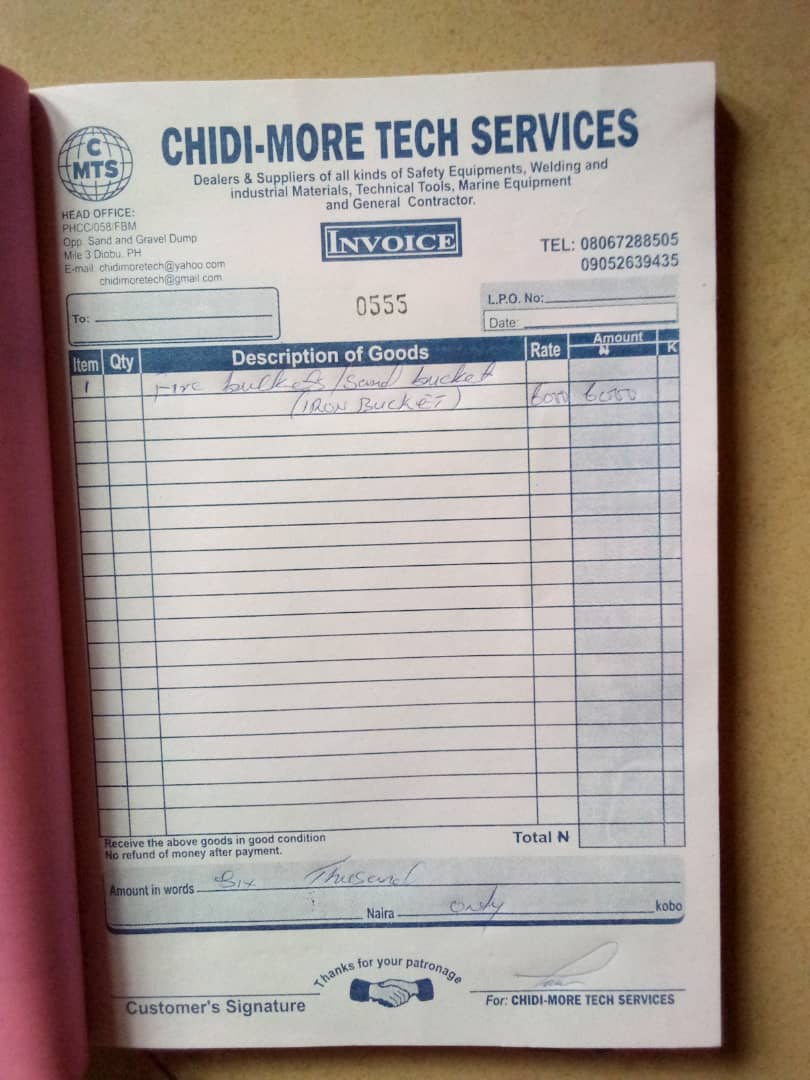 C
MTS
CHIDI-MORE TECH SERVICES
Dealers & Suppliers of all kinds of Safety Equipments, Welding and
industrial Materials, Technical Tools, Marine Equipment
and General Contractor.
HEAD OFFICE:
PHCC/058/FBM
Opp. Sand and Gravel Dump
Mile 3 Diobu, PH
E-mail: chidimoretech@yahoo.com
chidimoretech@gmail.com
INVOICE
TEL: 08067288505
09052639435
To:
0555
L.P.O. No:
Date:
Item Qty Description of Goods Rate Amount
₦ K
1 Fire buckets/Sand bucket
(IRON BUCKET) 6000 6000
Receive the above goods in good condition
No refund of money after payment.
Total ₦
Amount in words Six Thusand
Naira only kobo
Thanks for your patronage
Customer's Signature
For: CHIDI-MORE TECH SERVICES